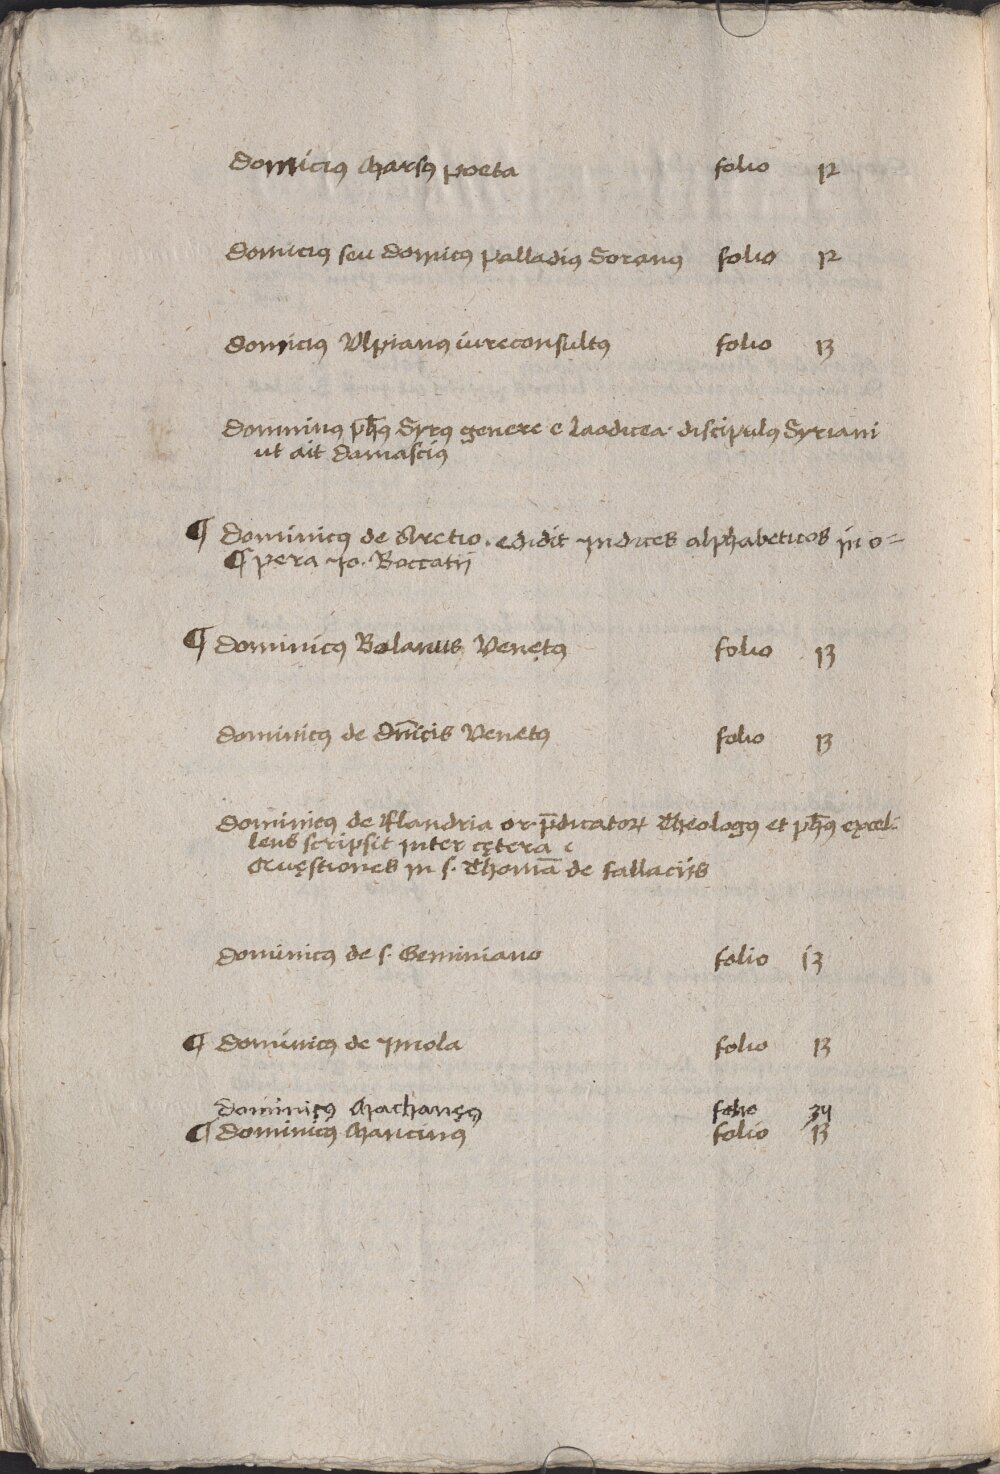 Domicius Marsus poeta folio 12
Domicius seu Domicus Palladius Soranus folio 12
Domicius Ulpianus iureconsultus folio 13
Domninus ph̅us Syrus genere e Laodicea discipulus Syriani
ut ait Damascius
¶ Dominicus de Aretio. edidit Indices alphabeticos in o=
¶ pera Io. Boccatij
¶ Dominicus Bolanus Venetus folio 13
Dominicus de Dn̅icis Venetus folio 13
Dominicus de Flandria or. p̅dicatorꝝ Theologus et ph̅us excel-
lens scripsit inter cętera
Quęstiones in s. Thomā de fallacijs
Dominicus de s. Geminiano folio 13
¶ Dominicus de Imola folio 13
Dominicus Machanęus folio 34
¶ Dominicus Mancinus folio 13